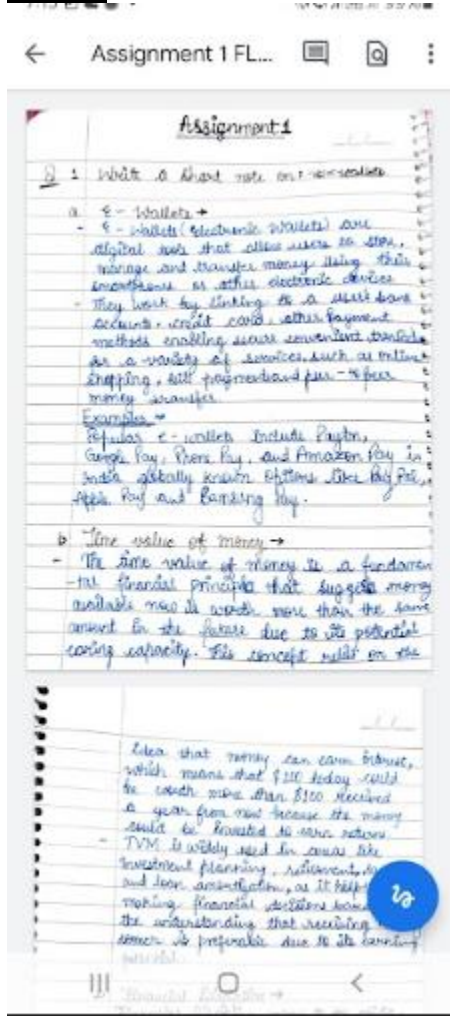 Assignment 1 FL...
Assignment 1
Q 1 Write a short note on
a E - Wallets →
- E - Wallets (Electronic Wallets) are
digital tools that allow users to store,
manage and transfer money using their
smartphone or other electronic devices
- They work by linking to a user's bank
accounts, credit card, other payment
methods enabling secure convenient
for a variety of services, such as online
shopping, bill payment and peer - to peer
money transfer
Examples →
Popular e - wallets include Paytm,
Google Pay, Phone Pay, and Amazon Pay in
India globally known options like Pay Pal,
Apple Pay and Samsung Pay.
b Time value of money →
- The time value of money is a fundamen
-tal financial principle that suggests money
available now is worth more than the same
amount in the future due to its potential
earning capacity. This concept relies on the
idea that money can earn interest,
which means that $100 today could
be worth more than $100 received
a year from now because the money
could be invested to earn returns
- TVM is widely used in areas like
investment planning, retirement,
and loan amortization, as it helps
making financial decisions
the understanding that receiving
sooner is preferable due to its earning